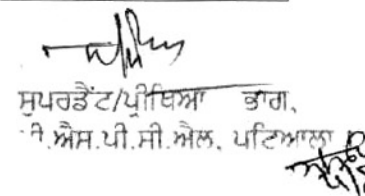 ਸੁਪਰਡੈਂਟ/ਪ੍ਰੀਖਿਆ ਭਾਗ,
ਐਸ.ਪੀ.ਸੀ.ਐਲ, ਪਟਿਆਲਾ